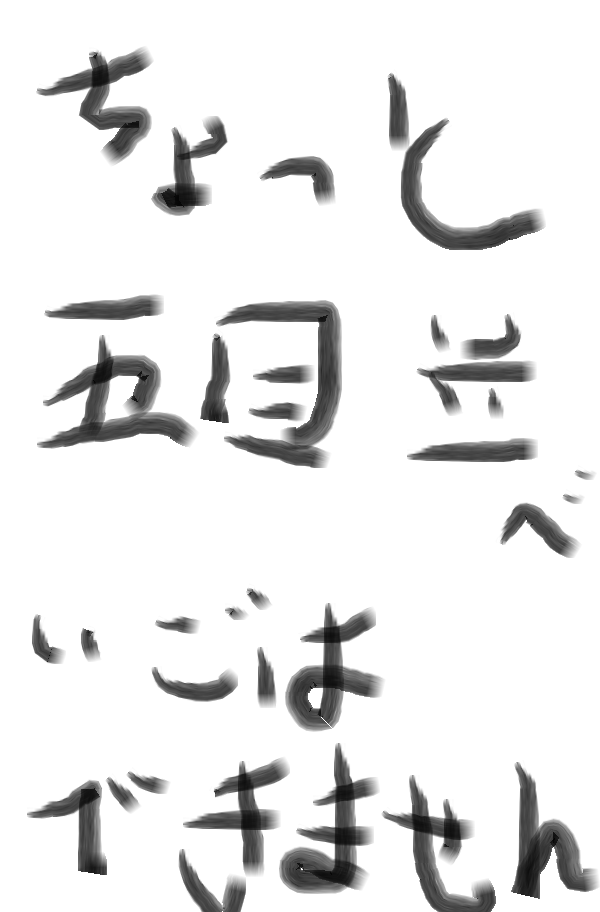 ちょっと
五目並べ
いごは
できません